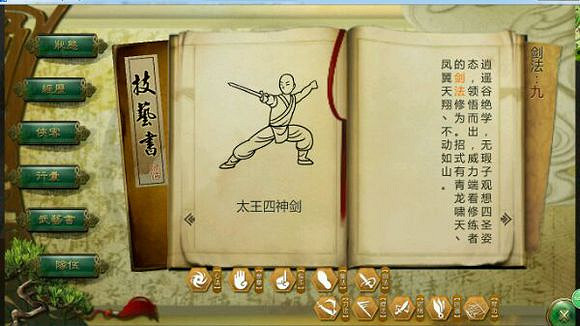 狀態
經歷
俠客
行囊
武藝書
隊伍
技藝書
太王四神剑
剑法:九
逍遥谷绝学,无瑕子观想四圣姿
态,领悟而出,威力端看修练者
的剑法修为。招式有青龙啸天、
凤翼天翔、不动如山。